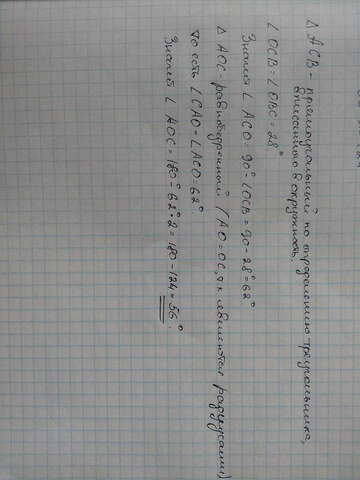 Δ ACB - прямоугольный по определению треугольника,
вписанного в окружность.
∠ OCB = ∠ OBC = 28°
Значит ∠ ACO = 90° - ∠OCB = 90 - 28° = 62°
Δ AOC - равнобедренный (AO = OC, т.к являются радиусами)
то есть ∠ CAO = ∠ ACO = 62°
Значит ∠ AOC = 180° - 62° · 2 = 180 - 124 = 56°.